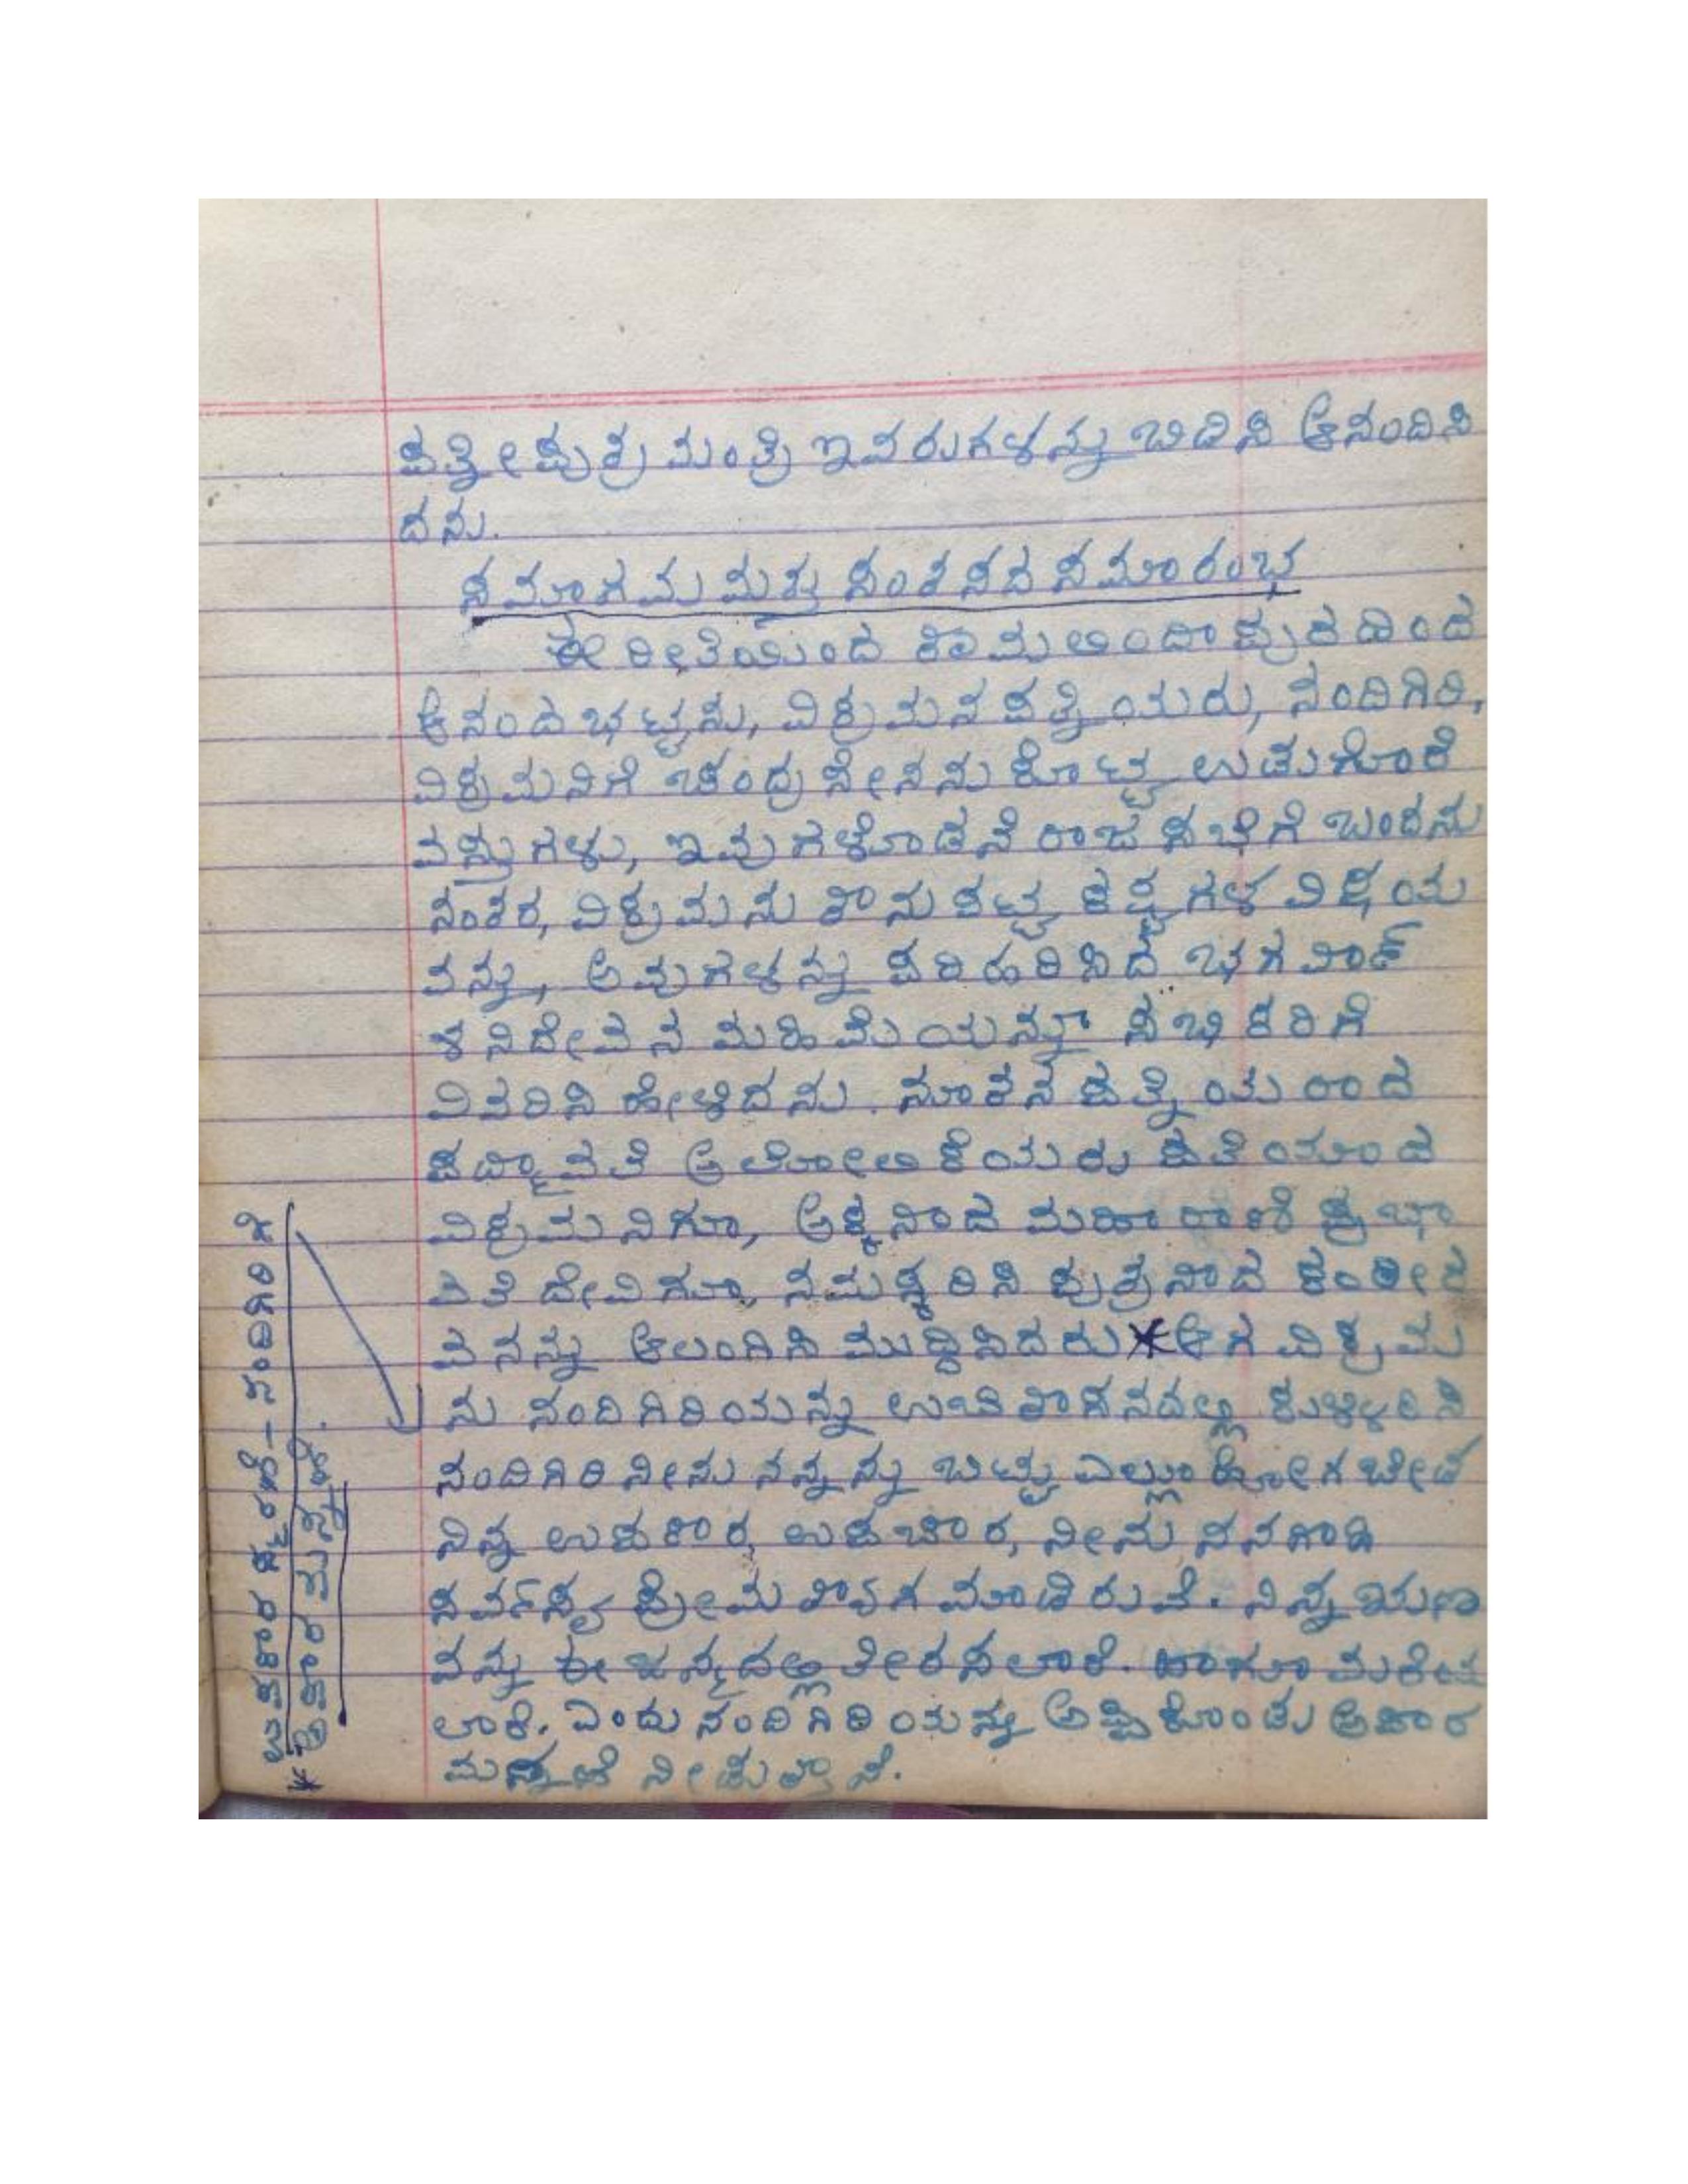 ಪತ್ನೀ ಪುತ್ರ ಮಂತ್ರಿ ಇವರುಗಳನ್ನು ಬಿದಿಸಿ ಆನಂದಿಸಿ
ದನು.
ಸಮಾಗಮ ಮತ್ತು ಸಂತಸದ ಸಮಾರಂಭ
ಈ ರೀತಿಯಿಂದ
ಆನಂದ ಭಟ್ಟನು, ವಿಕ್ರಮನ ಪತ್ನಿಯರು, ನಂದಿಗಿರಿ,
ವಿಕ್ರಮನಿಗೆ ಚಂದ್ರಸೇನನು ಕೊಟ್ಟ ಉಡುಗೊರೆ
ವಸ್ತುಗಳು, ಇವುಗಳೊಡನೆ ರಾಜ ಸಭೆಗೆ ಬಂದನು
ನಂತರ, ವಿಕ್ರಮನು ತಾನು ಕಟ್ಟ ಕಷ್ಟಗಳ ವಿಷಯ
ವನ್ನು, ಅವುಗಳನ್ನು ಪರಿಹರಿಸಿದ ಭಗವಾನ್
ಶನಿದೇವನ ಮಹಿಮೆಯನ್ನೂ ಸಭಿಕರಿಗೆ
ವಿವರಿಸಿ ಹೇಳಿದನು. ನೂತನ ಪತ್ನಿಯರಾದ
ಪದ್ಮಾವತಿ ಅಲೋಲಿಕೆಯರು ಪತಿಯಾದ
ವಿಕ್ರಮನಿಗೂ, ಅಕ್ಕನಾದ ಮಹಾರಾಣಿ ಪ್ರಭಾ
ವತಿ ದೇವಿಗೂ, ನಮಸ್ಕರಿಸಿ ಪುತ್ರನಾದ ಕಂಠೀರ
ವನನ್ನು ಆಲಂಗಿಸಿ ಮುದ್ದಿಸಿದರು * ಆಗ ವಿಕ್ರಮ
ನು ನಂದಿಗಿರಿಯನ್ನು ಉಚಿತಾಸನದಲ್ಲಿ ಕುಳ್ಳಿರಿಸಿ
ನಂದಿಗಿರಿ ನೀನು ನನ್ನನ್ನು ಬಿಟ್ಟು ಎಲ್ಲೂ ಹೋಗಬೇಡ
ನಿನ್ನ ಉಪಕಾರ, ಉಪಚಾರ, ನೀನು ನನಗಾಗಿ
ಸರ್ವಸ್ವ ಪ್ರೇಮ ತ್ಯಾಗ ಮಾಡಿರುವೆ. ನಿನ್ನ ಋಣ
ವನ್ನು ಈ ಜನ್ಮದಲ್ಲಿ ತೀರಸಲಾರೆ. ಹಾಗೂ ಮರೆಯ
ಲಾರೆ. ಎಂದು ನಂದಿಗಿರಿಯನ್ನು ಅಪ್ಪಿಕೊಂಡು ಅಪಾರ
ಮನ್ನಣೆ ನೀಡುತ್ತಾನೆ.
ಉಪಕಾರ ಸ್ಮರಣೆ - ನಂದಿಗಿರಿಗೆ